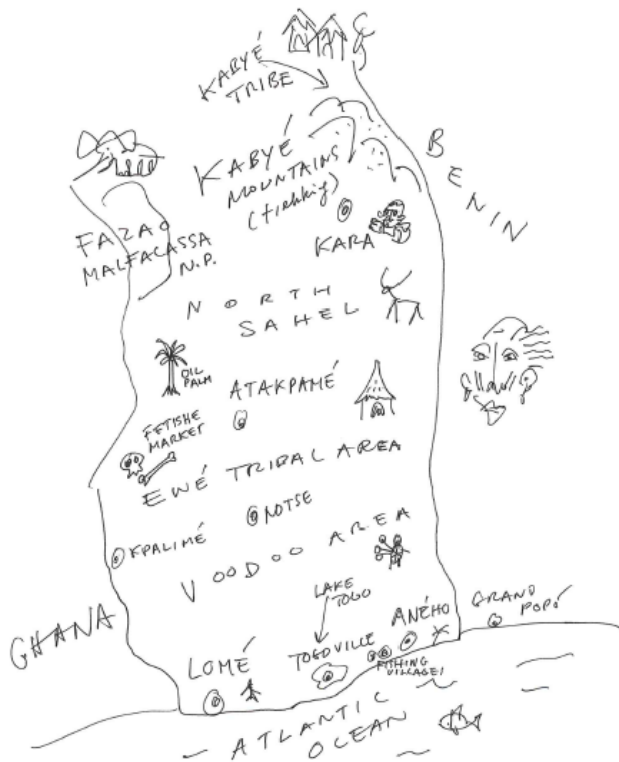 KABYÉ
TRIBE
KABYÉ
MOUNTAINS
(trekking)
BENIN
FAZAO
MALFACASSA
N.P.
KARA
NORTH
SAHEL
OIL
PALM
ATAKPAMÉ
FETISHE
MARKET
EWÉ TRIBAL AREA
NOTSE
KPALIMÉ
VOODOO AREA
LAKE
TOGO
GHANA
LOMÉ
TOGOVILLE
ANÉHO
GRAND
POPÓ
FISHING
VILLAGES
ATLANTIC
OCEAN